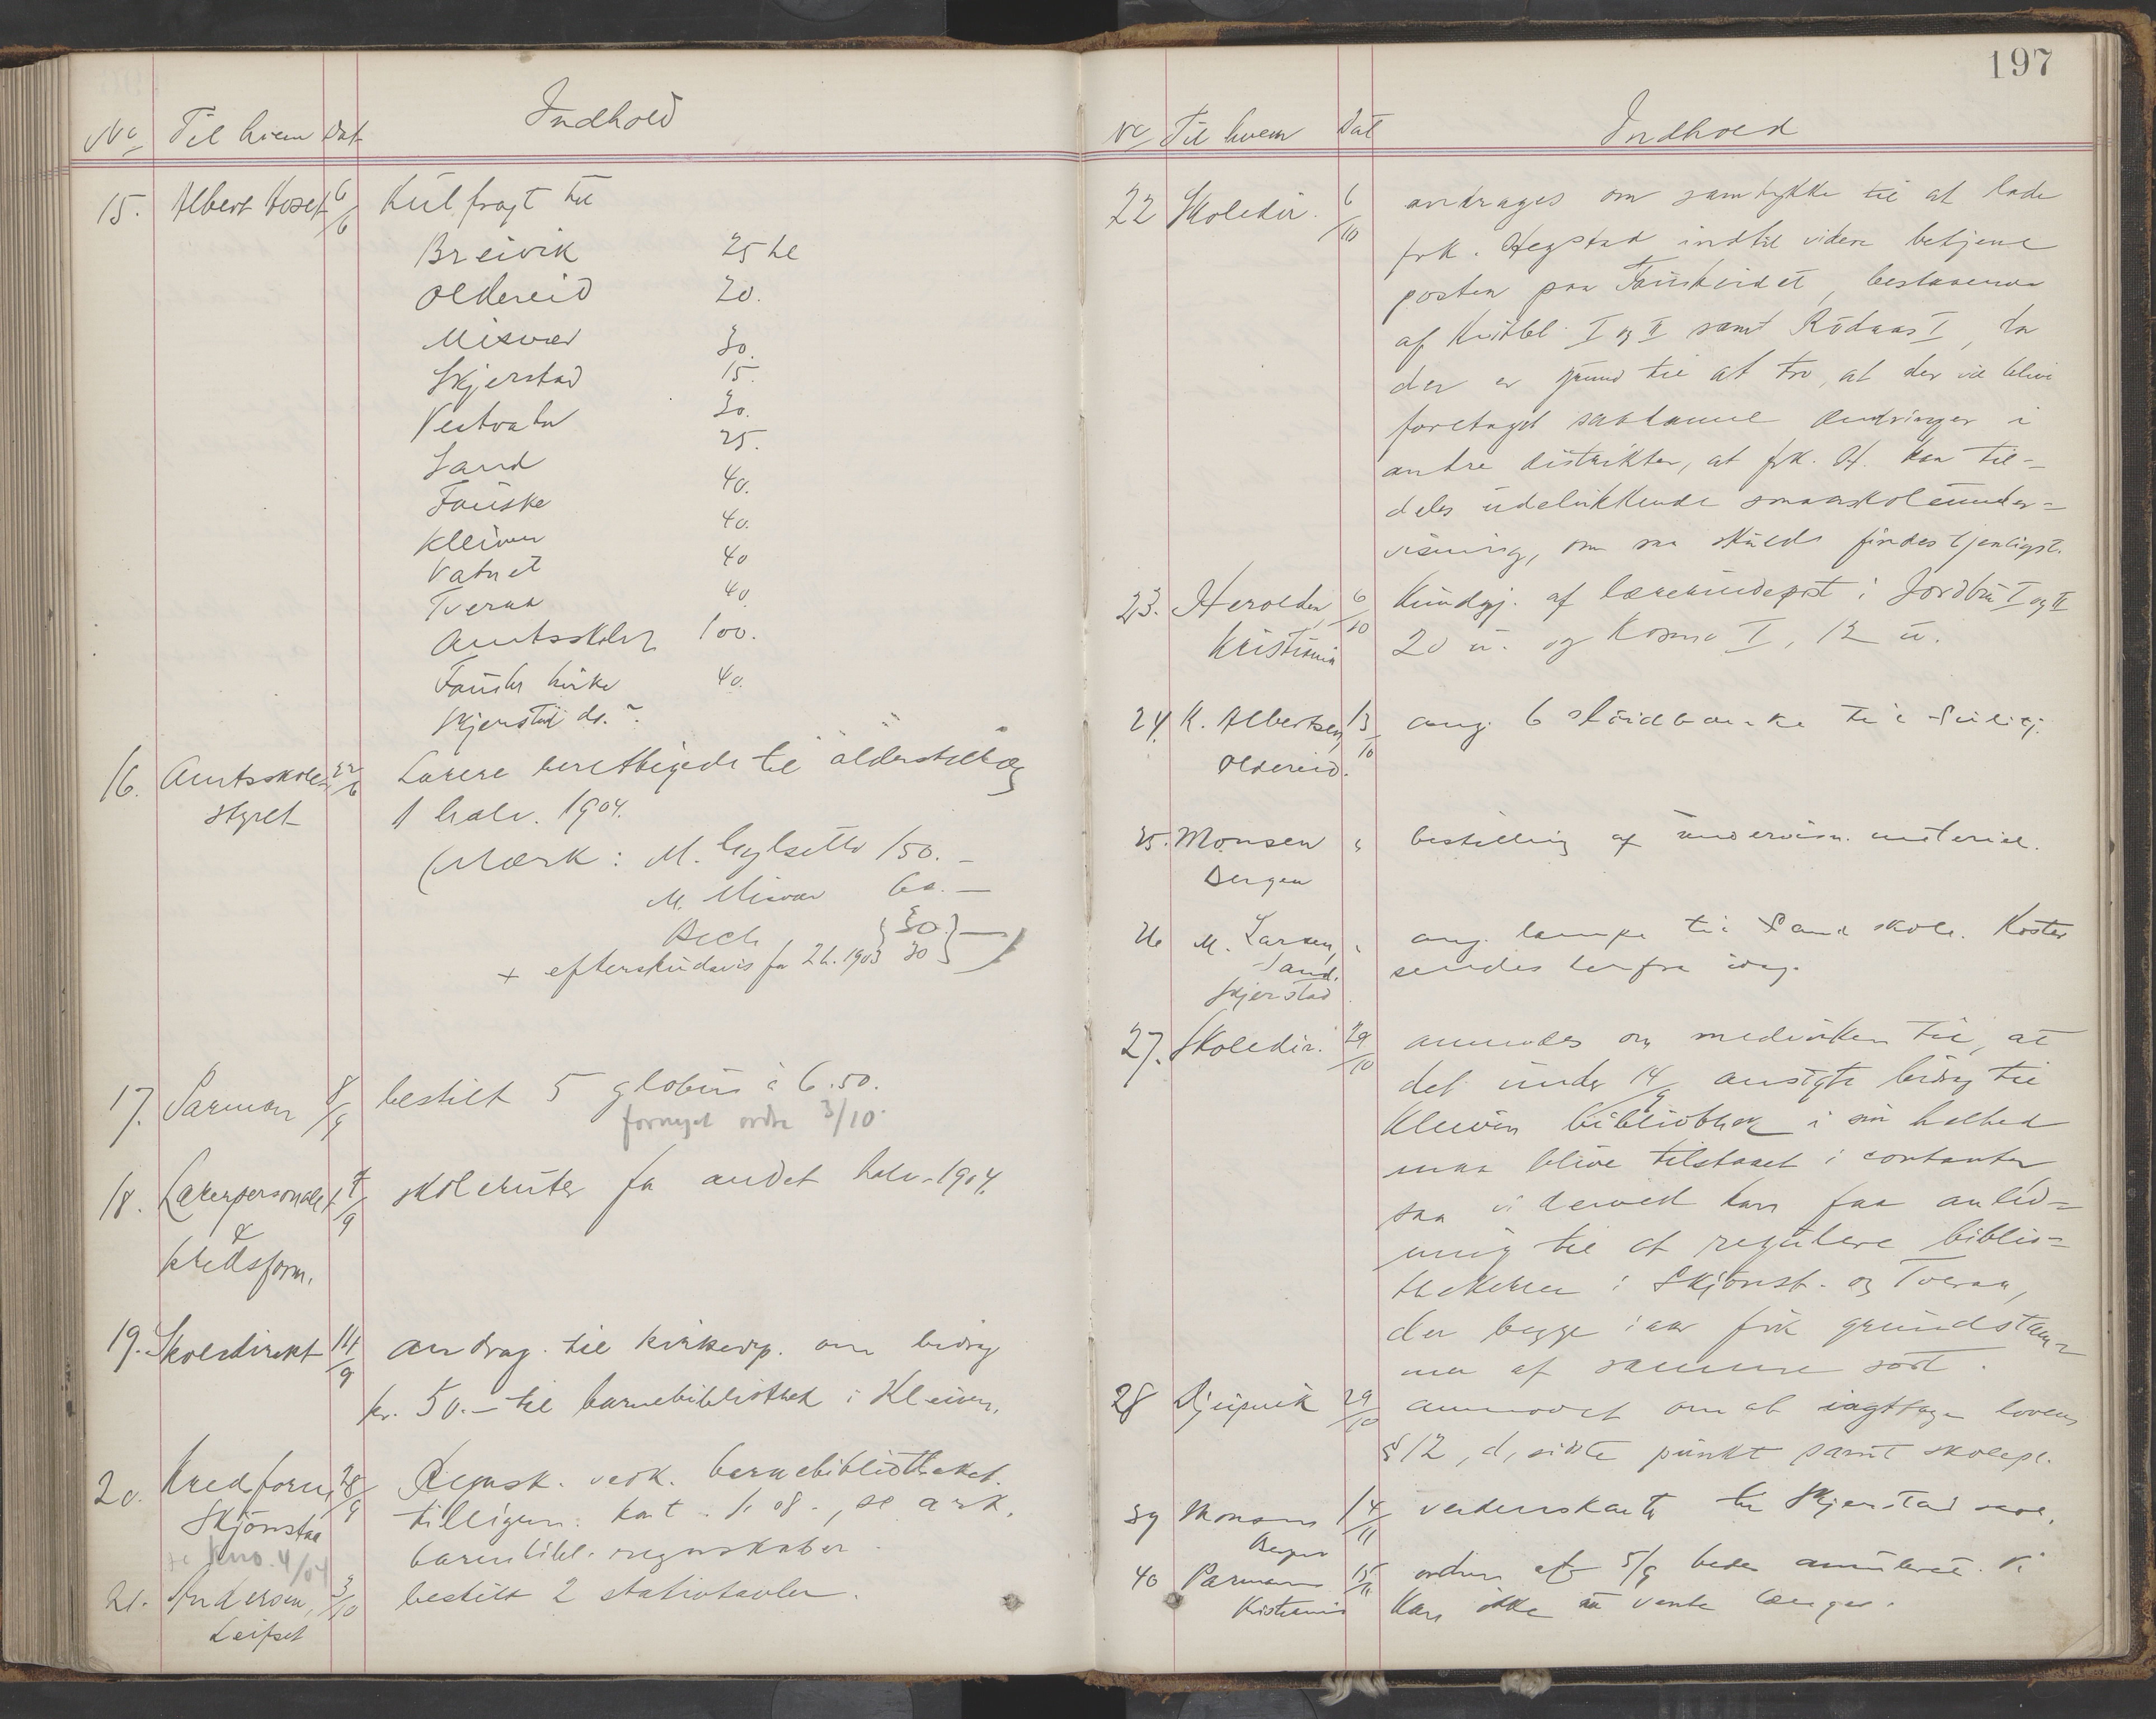 197
No Til hvem Dat Indhold
15. Albert Hoset 6/6 Kulfragt til
Breivik 25 hl
Oldereid 20.
Misvær 30.
Skjerstad 15.
Vestvatn 30.
Sand 25.
Fauske 40.
Kleiven 40.
Vatnet 40
Tveraa 40.
Amtsskolen 100.
Fauske kirke 40.
Skjerstad do. ?
16. Amtsskole- 22/6 Lærere berettigede til alderstillæg
styret 1 halv. 1904.
(Mærk: M. Gylseth 150. –
M. Misvær 60. –
Bech 30. –
+ efterskudsvis for 2 h. 1903 30 )
17. Parman 8/9 bestilt 5 globus à 6.50.
fornyet ordre 3/10
18. Lærerpersonalet 9/9 skoleruter for andet halv. 1904.
&
kredsform.
19. Skoledirekt 14/9 andrag. til kirkedep. om bidrag
kr. 50.– til barnebibliothek i Kleiven.
20. Kredsform, 28/9 Regnsk. vedk. barnebibliotheket.
Skjønstaa tilligem. kvt. 1.08 -, se ark.
se jrno. 4/04 barnebibl. regnskaber.
21. Andersen, 3/10 bestilt 2 stativtavler.
Leifset
No Til hvem Dat Indhold
22 Skoledir. 6/10 andrages om samtykke til at lade
frk. Hegstad indtil videre betjene
posten paa Fauskeidet, bestaaende
af Kvitbl. I og II samt Rödaas I, da
der er grund til at tro, at der vil blive
foretaget saadanne ændringer i
andre distrikter, at frk. H. kan til-
deles udelukkende smaaskoleunder-
visning, om saa skulde findes tjenligst.
23. Herolden, 6/10 Kundgj. af lærerindepost i Jordbru I og II
Kristiania 20 u. og Kosmo I, 12 u.
24. K. Albertsen, 13/10 ang. 6 slöidbænke til
Oldereid.
25. Monsen " bestilling af undervisn. materiel.
Bergen
26 M. Larsen, " ang. lampe til Sand skole. Koster
Sand. sendes herfra idag.
Skjerstad
27. Skoledir. 29/10 anmodes om medvirken til, at
det under 14/9 ansøgte bidrag til
Kleiven bibliothek i sin helhed
maa blive tilstaaet i contanter
saa vi derved kan faa anled-
ning til at regulere biblio-
thekerne i Skjönst. og Tveraa,
der begge iaar fik grundstam-
me af samme sort.
28 Djupvik 29/10 anmodet om at iagttage lovens
§ 12, d, sidste punkt samt skolepl.
39 Monsen 14/11 verdenskart til Skjerstad skole.
Bergen
40 Parmann 15/11 ordren af 5/9 bedes annulleret. Vi
Kristiania kan ikke nu vente længer.